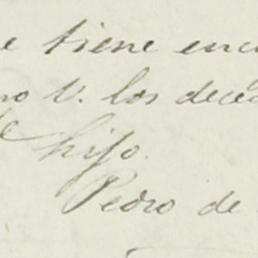 e tiene enc
no V. los dece
e hijo.
Pedro de